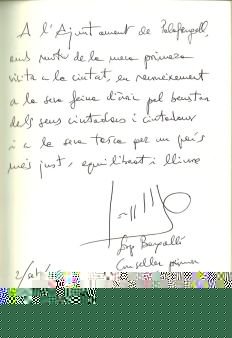 A l'Ajuntament de Palafrugell,
amb motiu de la meva primera
visita a la ciutat, en reconeixement
a la seva feina d'avui pel benestar
dels seus ciutadans i ciutadanes
i a la seva tasca per un país
més just, equilibrat i lliure
Josep Bargalló
Conseller primer